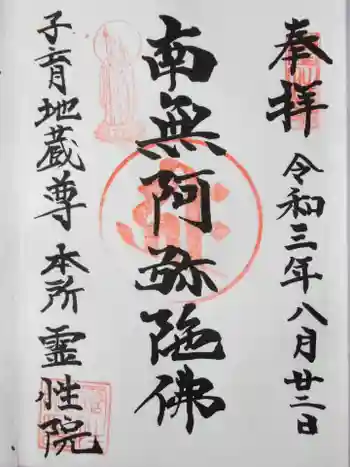 奉拝
令和三年八月廿二日
南無阿弥陀佛
子育地蔵尊
本所
霊性院